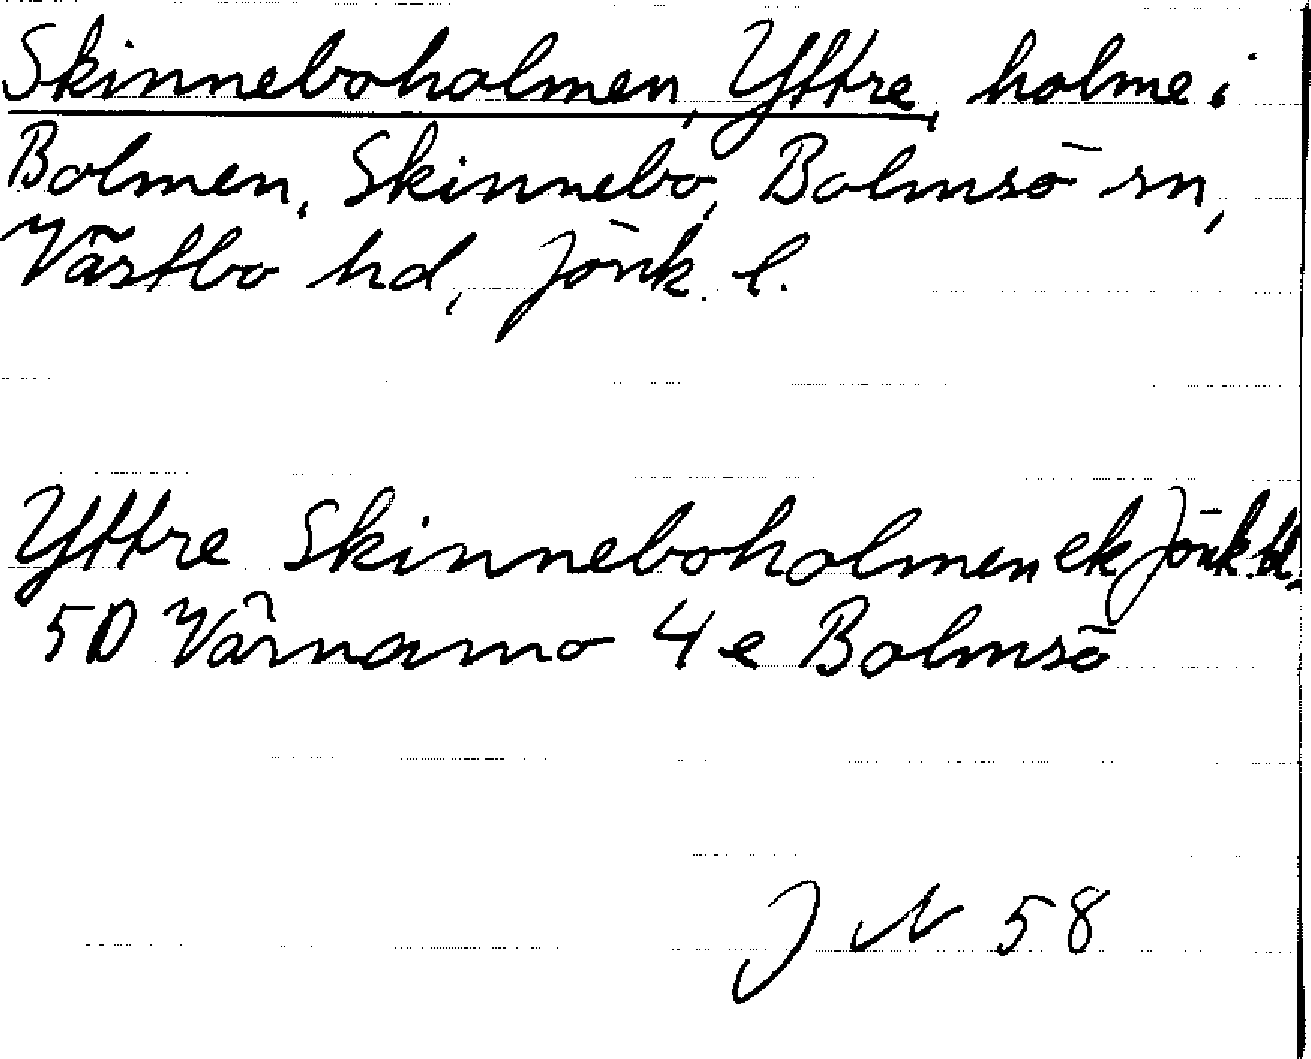 Skinneboholmen, Yttre, holme i
Bolmen, Skinnebo, Bolmsö sn,
Västbo hd, Jönk. l.
Yttre Skinneboholmen ek Jönk.
5D Värnamo 4e Bolmsö
J N 58